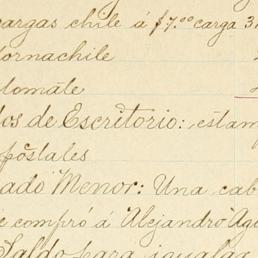 cargas chile á $7.00 carga 3
ornachile
tomate
os de Escritorio: estam
postales
ado Menor: Una cab
e compró á Alejandro Agu
Saldo para igualar